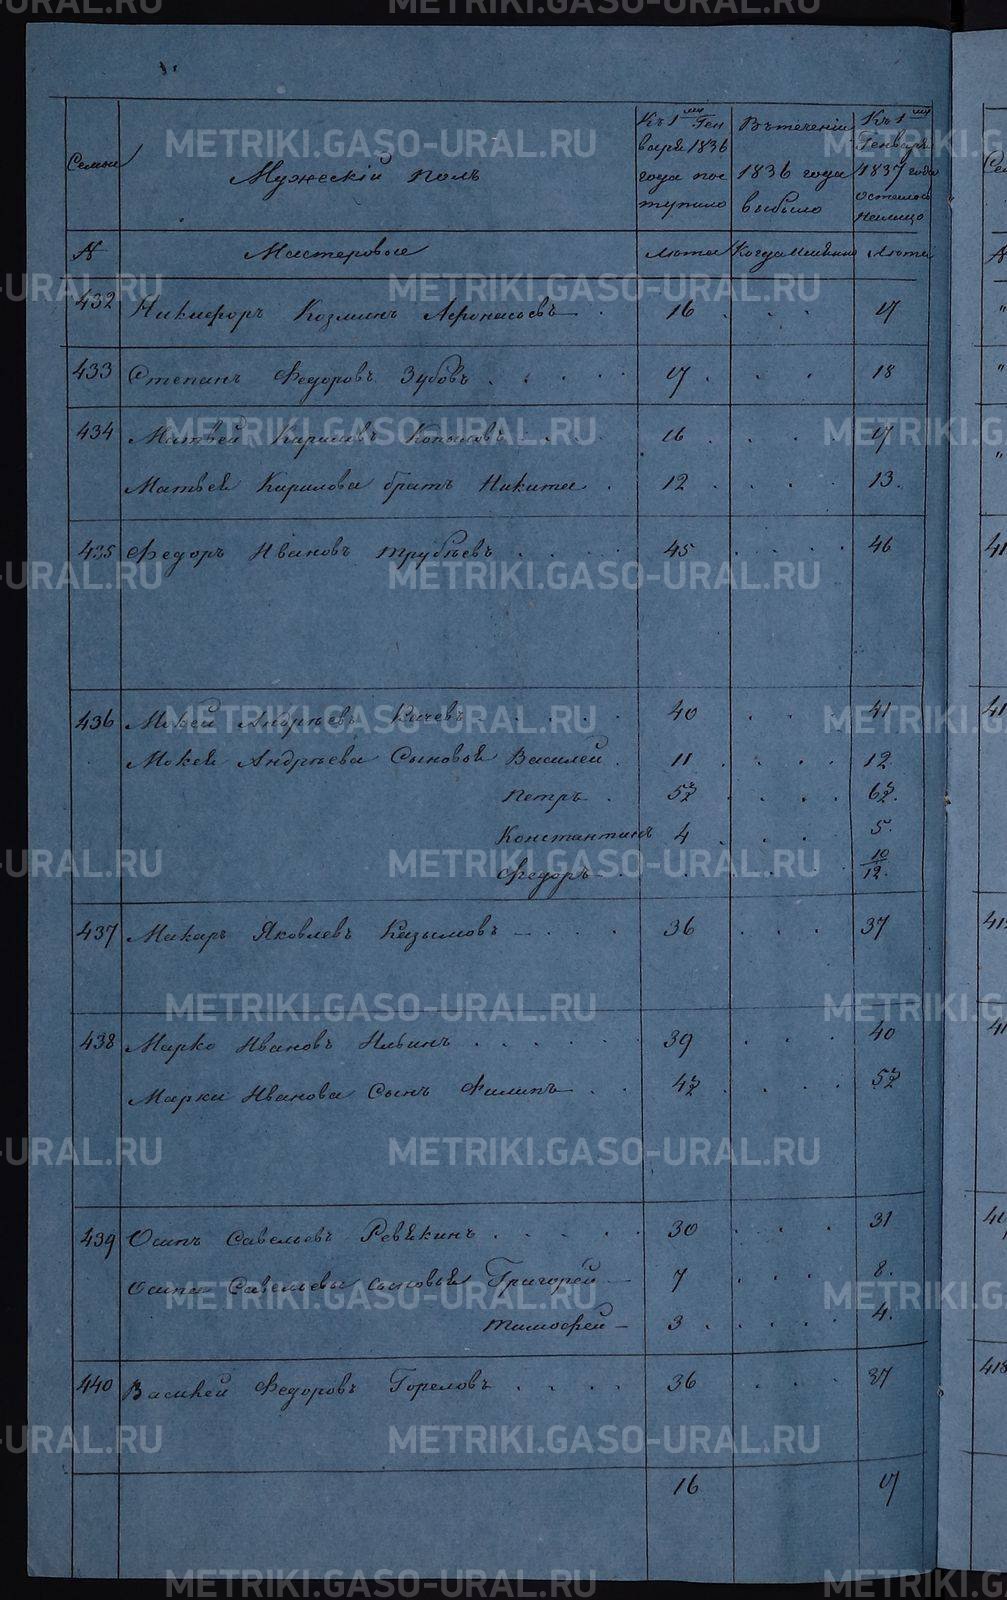 METRIKI.GASO-URAL.RU
Семьи
Мужескій полъ
Къ 1му Ген
варя 1836
года пос
тупило
Въ теченіи
1836 года
выбыло
Къ 1му
Генваря
1837 года
осталось
налицо
№
Мастеровые
Лѣта
Когда именно
Лѣта
432 Никифоръ Козминъ Афонасьевъ 16 17
433 Степанъ Федоровъ Зубовъ 17 18
434 Матвей Кириловъ Копыловъ 16 17
Матвея Кирилова братъ Никита 12 13
435 Федоръ Ивановъ Трубѣевъ 45 46
436 Мокей Андрѣевъ Качевъ 40 41
Мокея Андрѣева Сыновья Василей 11 12
Петръ 5½ 6½
Константинъ 4 5
Федоръ 10/12
437 Макаръ Яковлевъ Казымовъ 36 37
438 Марко Ивановъ Ильинъ 39 40
Марки Иванова Сынъ Филипъ 4½ 5½
439 Осипъ Савельевъ Ревякинъ 30 31
Осипа Савельева сыновья Григорей 7 8
Тимофей 3 4
440 Василей Федоровъ Гореловъ 36 37
16 17